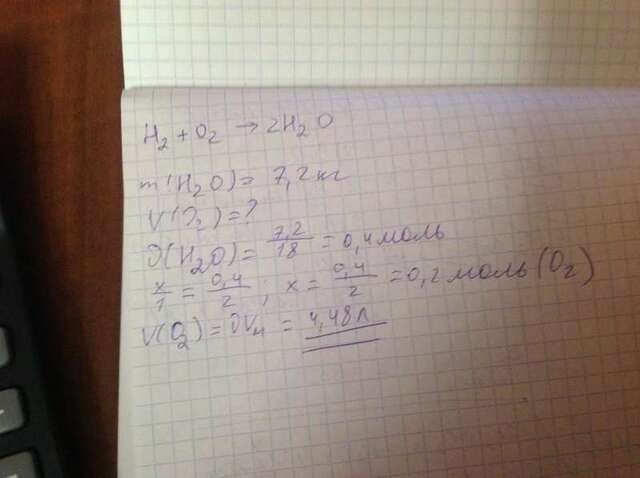 H₂ + O₂ → 2H₂O
m(H₂O) = 7,2 кг
V(O₂) = ?
∂(H₂O) = 7,2/18 = 0,4 моль
x/1 = 0,4/2 ; x = 0,4/2 = 0,2 моль (O₂)
V(O₂) = ∂Vм = 4,48 л